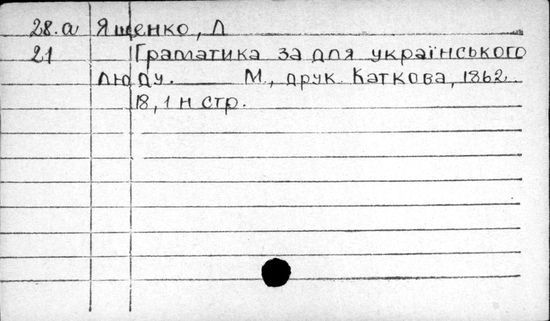 28.а Ященко, Л
21 Граматика за для українського
люду. М., друк. Каткова, 1862.
18, 1 н стр.